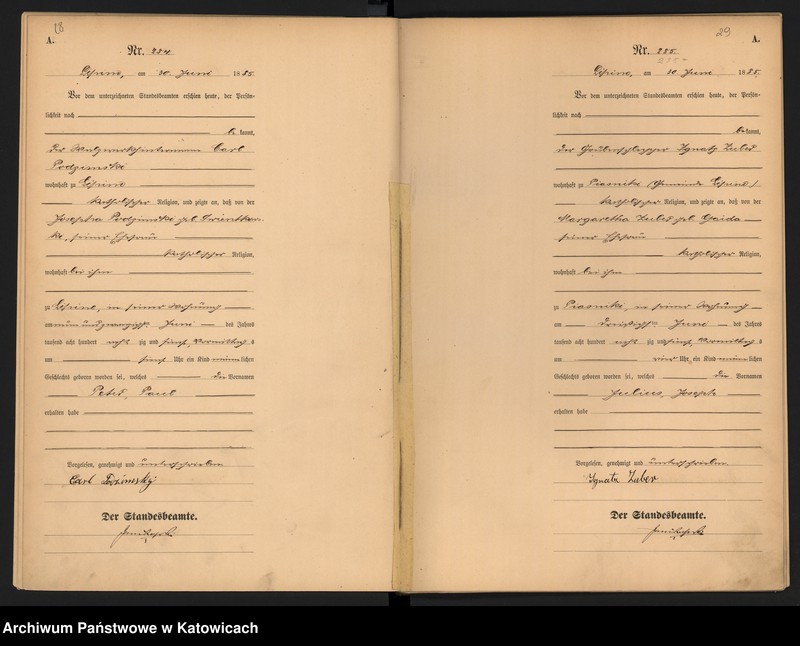 28
A.
Nr. 284.
am 30 Juni 1885.
Vor dem unterzeichneten Standesbeamten erschien heute, der Persön-
lichkeit nach
be kannt,
der Carl
Podzimski
wohnhaft zu
katholischer Religion, und zeigte an, daß von der
Josepha Podzimska geb.
seiner Ehefrau
katholischer Religion,
wohnhaft bei ihm
zu in seiner Wohnung
am neun und zwanzigsten Juni des Jahres
tausend acht hundert acht zig und fünf Vormittag s
um fünf Uhr ein Kind männlichen
Geschlechts geboren worden sei, welches die Vornamen
Peter, Paul
erhalten habe
Vorgelesen, genehmigt und unterschrieben
Carl
Der Standesbeamte.
29
A.
Nr. 285.
am 30 Juni 1885.
Vor dem unterzeichneten Standesbeamten erschien heute, der Persön-
lichkeit nach
be kannt,
der Ignatz Zuber
wohnhaft zu Piasniki (Gemeinde
katholischer Religion, und zeigte an, daß von der
Margaretha Zuber geb. Gaida
seiner Ehefrau
katholischer Religion,
wohnhaft bei ihm
zu Piasniki, in seiner Wohnung
am dreißigsten Juni des Jahres
tausend acht hundert acht zig und fünf Vormittag s
um vier Uhr ein Kind männlichen
Geschlechts geboren worden sei, welches die Vornamen
Julius, Joseph
erhalten habe
Vorgelesen, genehmigt und unterschrieben.
Ignatz Zuber
Der Standesbeamte.
Archiwum Państwowe w Katowicach